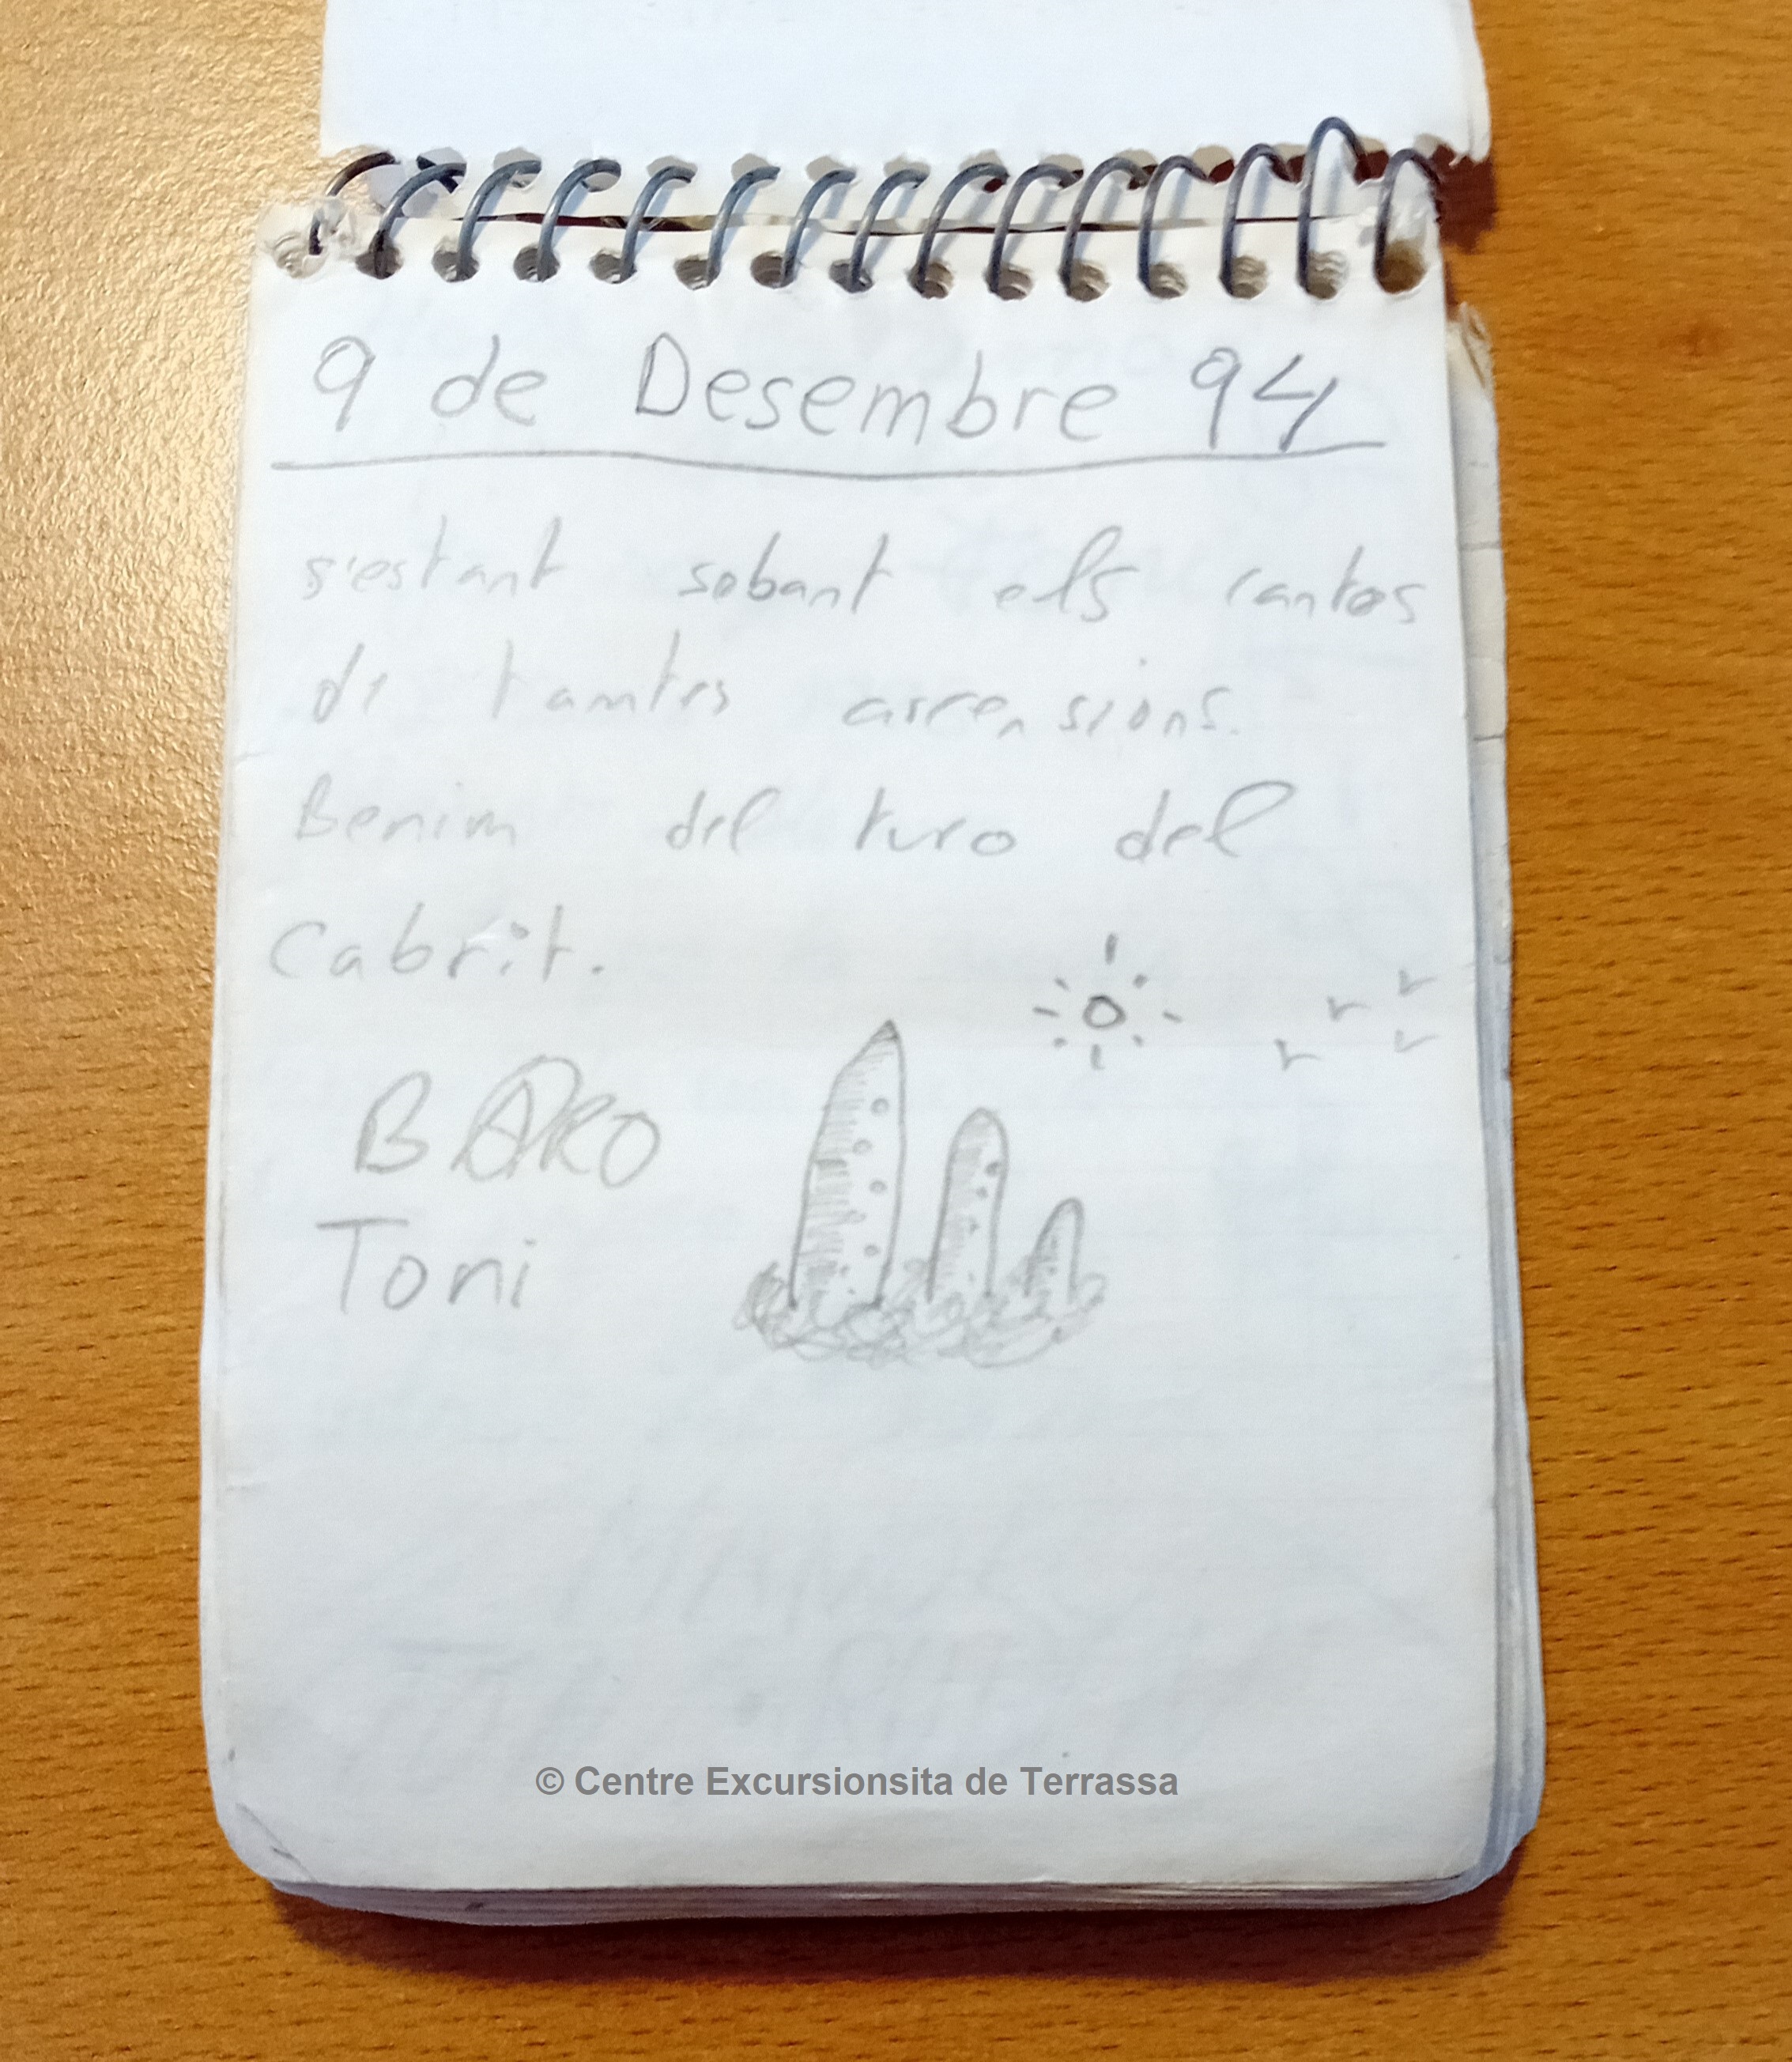 9 de Desembre 94
s'estant sobant els cantos
de tamtes ascensions.
Benim del turo del
Cabrit.
BARO
Toni
© Centre Excursionsita de Terrassa